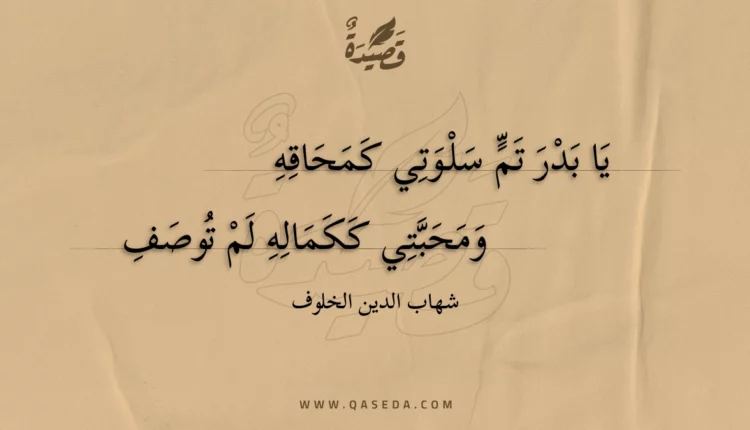 قَصِيدَةٌ
يَا بَدْرَ تَمٍّ سَلْوَتِي كَمَحَاقِهِ
وَمَحَبَّتِي كَكَمَالِهِ لَمْ تُوصَفِ
شهاب الدين الخلوف
WWW.QASEDA.COM